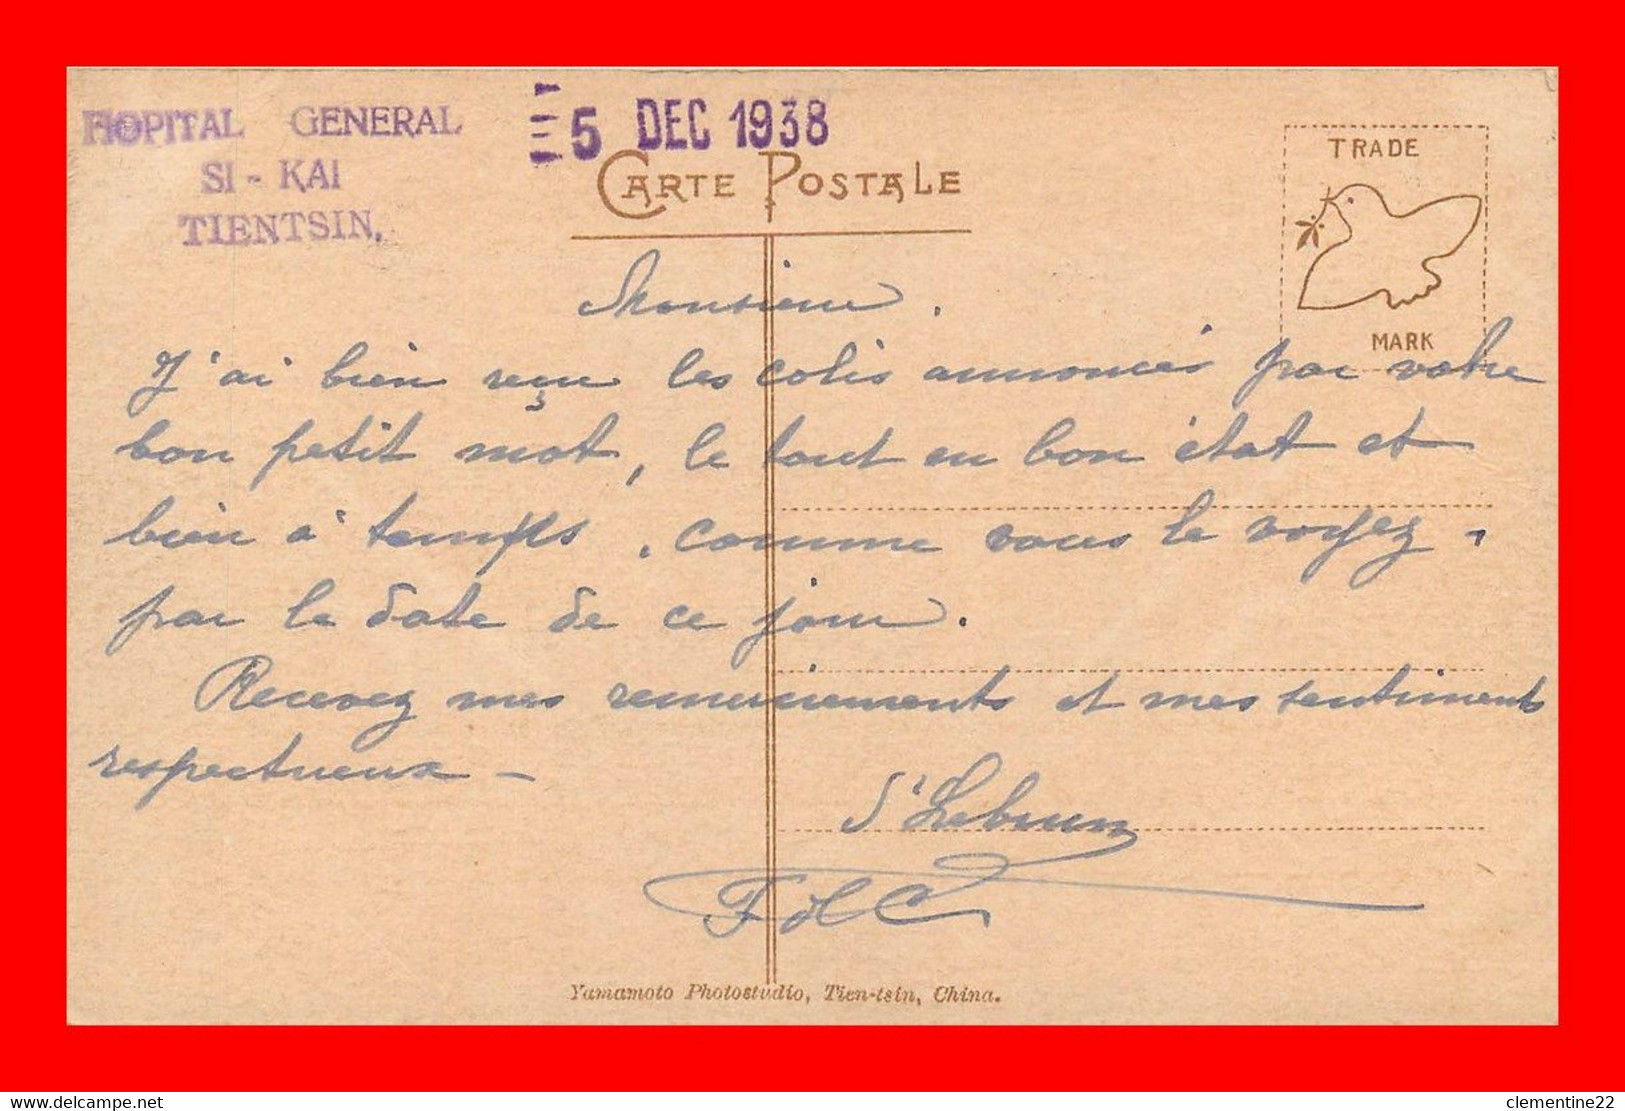 HOPITAL GENERAL
SI - KAI
TIENTSIN.
5 DEC 1938
CARTE POSTALE
TRADE
MARK
Monsieur.
J'ai bien reçu les colis annoncés par votre
bon petit mot, le tout en bon état et
bien à temps, comme vous le voyez,
par la date de ce jour.
Recevez mes remerciements et mes sentiments
respectueux -
S'Lebrun
Yamamoto Photostudio, Tien-tsin, China.
https://www.delcampe.net
clementine22